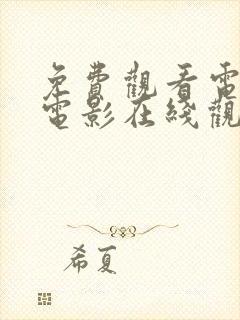 免費觀看電
電影在綫觀
希夏